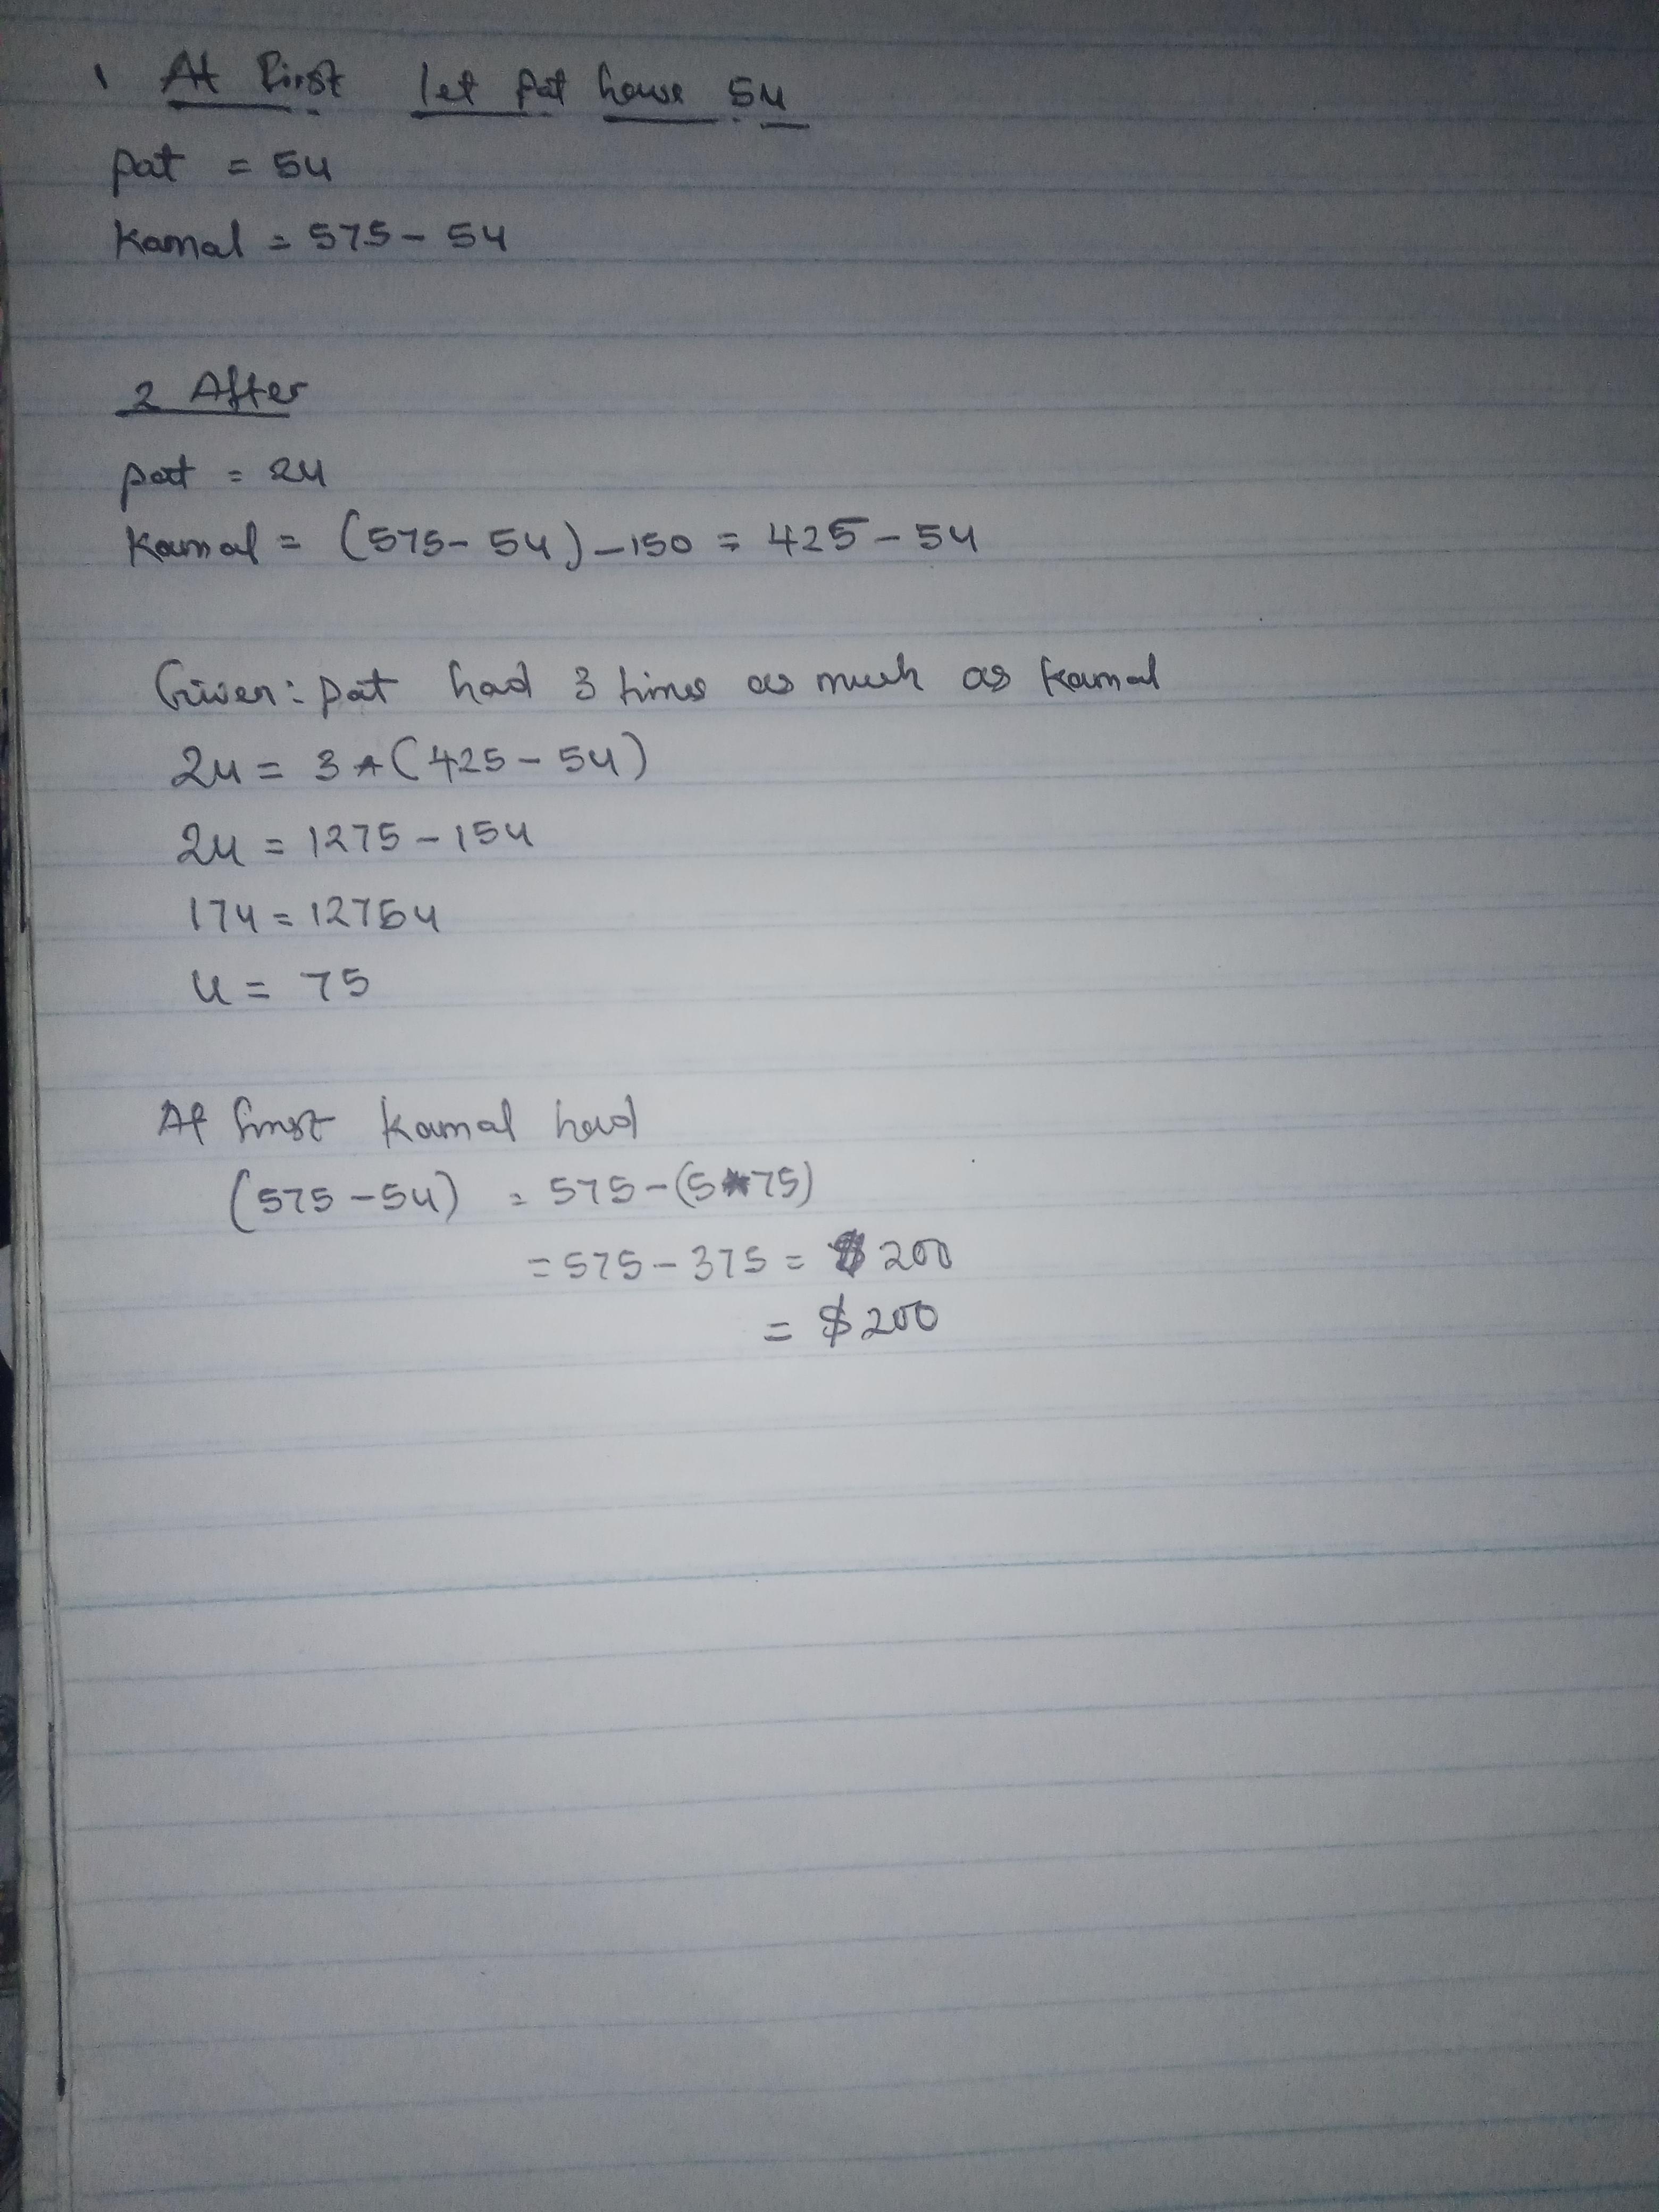 1 At first let pat have 5u
pat = 5u
Kamal = 575 - 5u
2 After
pat = 2u
Kamal = (575 - 5u) - 150 = 425 - 5u
Given: pat had 3 times as much as Kamal
2u = 3 * (425 - 5u)
2u = 1275 - 15u
17u = 1275u
u = 75
At first Kamal had
(575 - 5u) = 575 - (5*75)
= 575 - 375 = $ 200
= $ 200